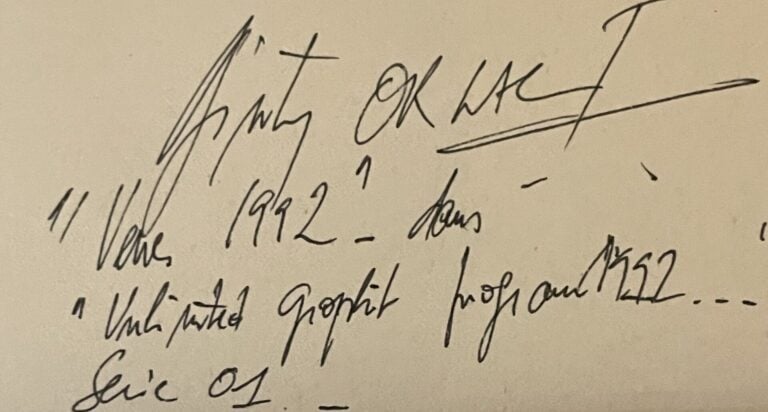 OKLAC
" Venus 1992" - dans
"Unlimited graphit program 1992 ... "
Serie 01. -